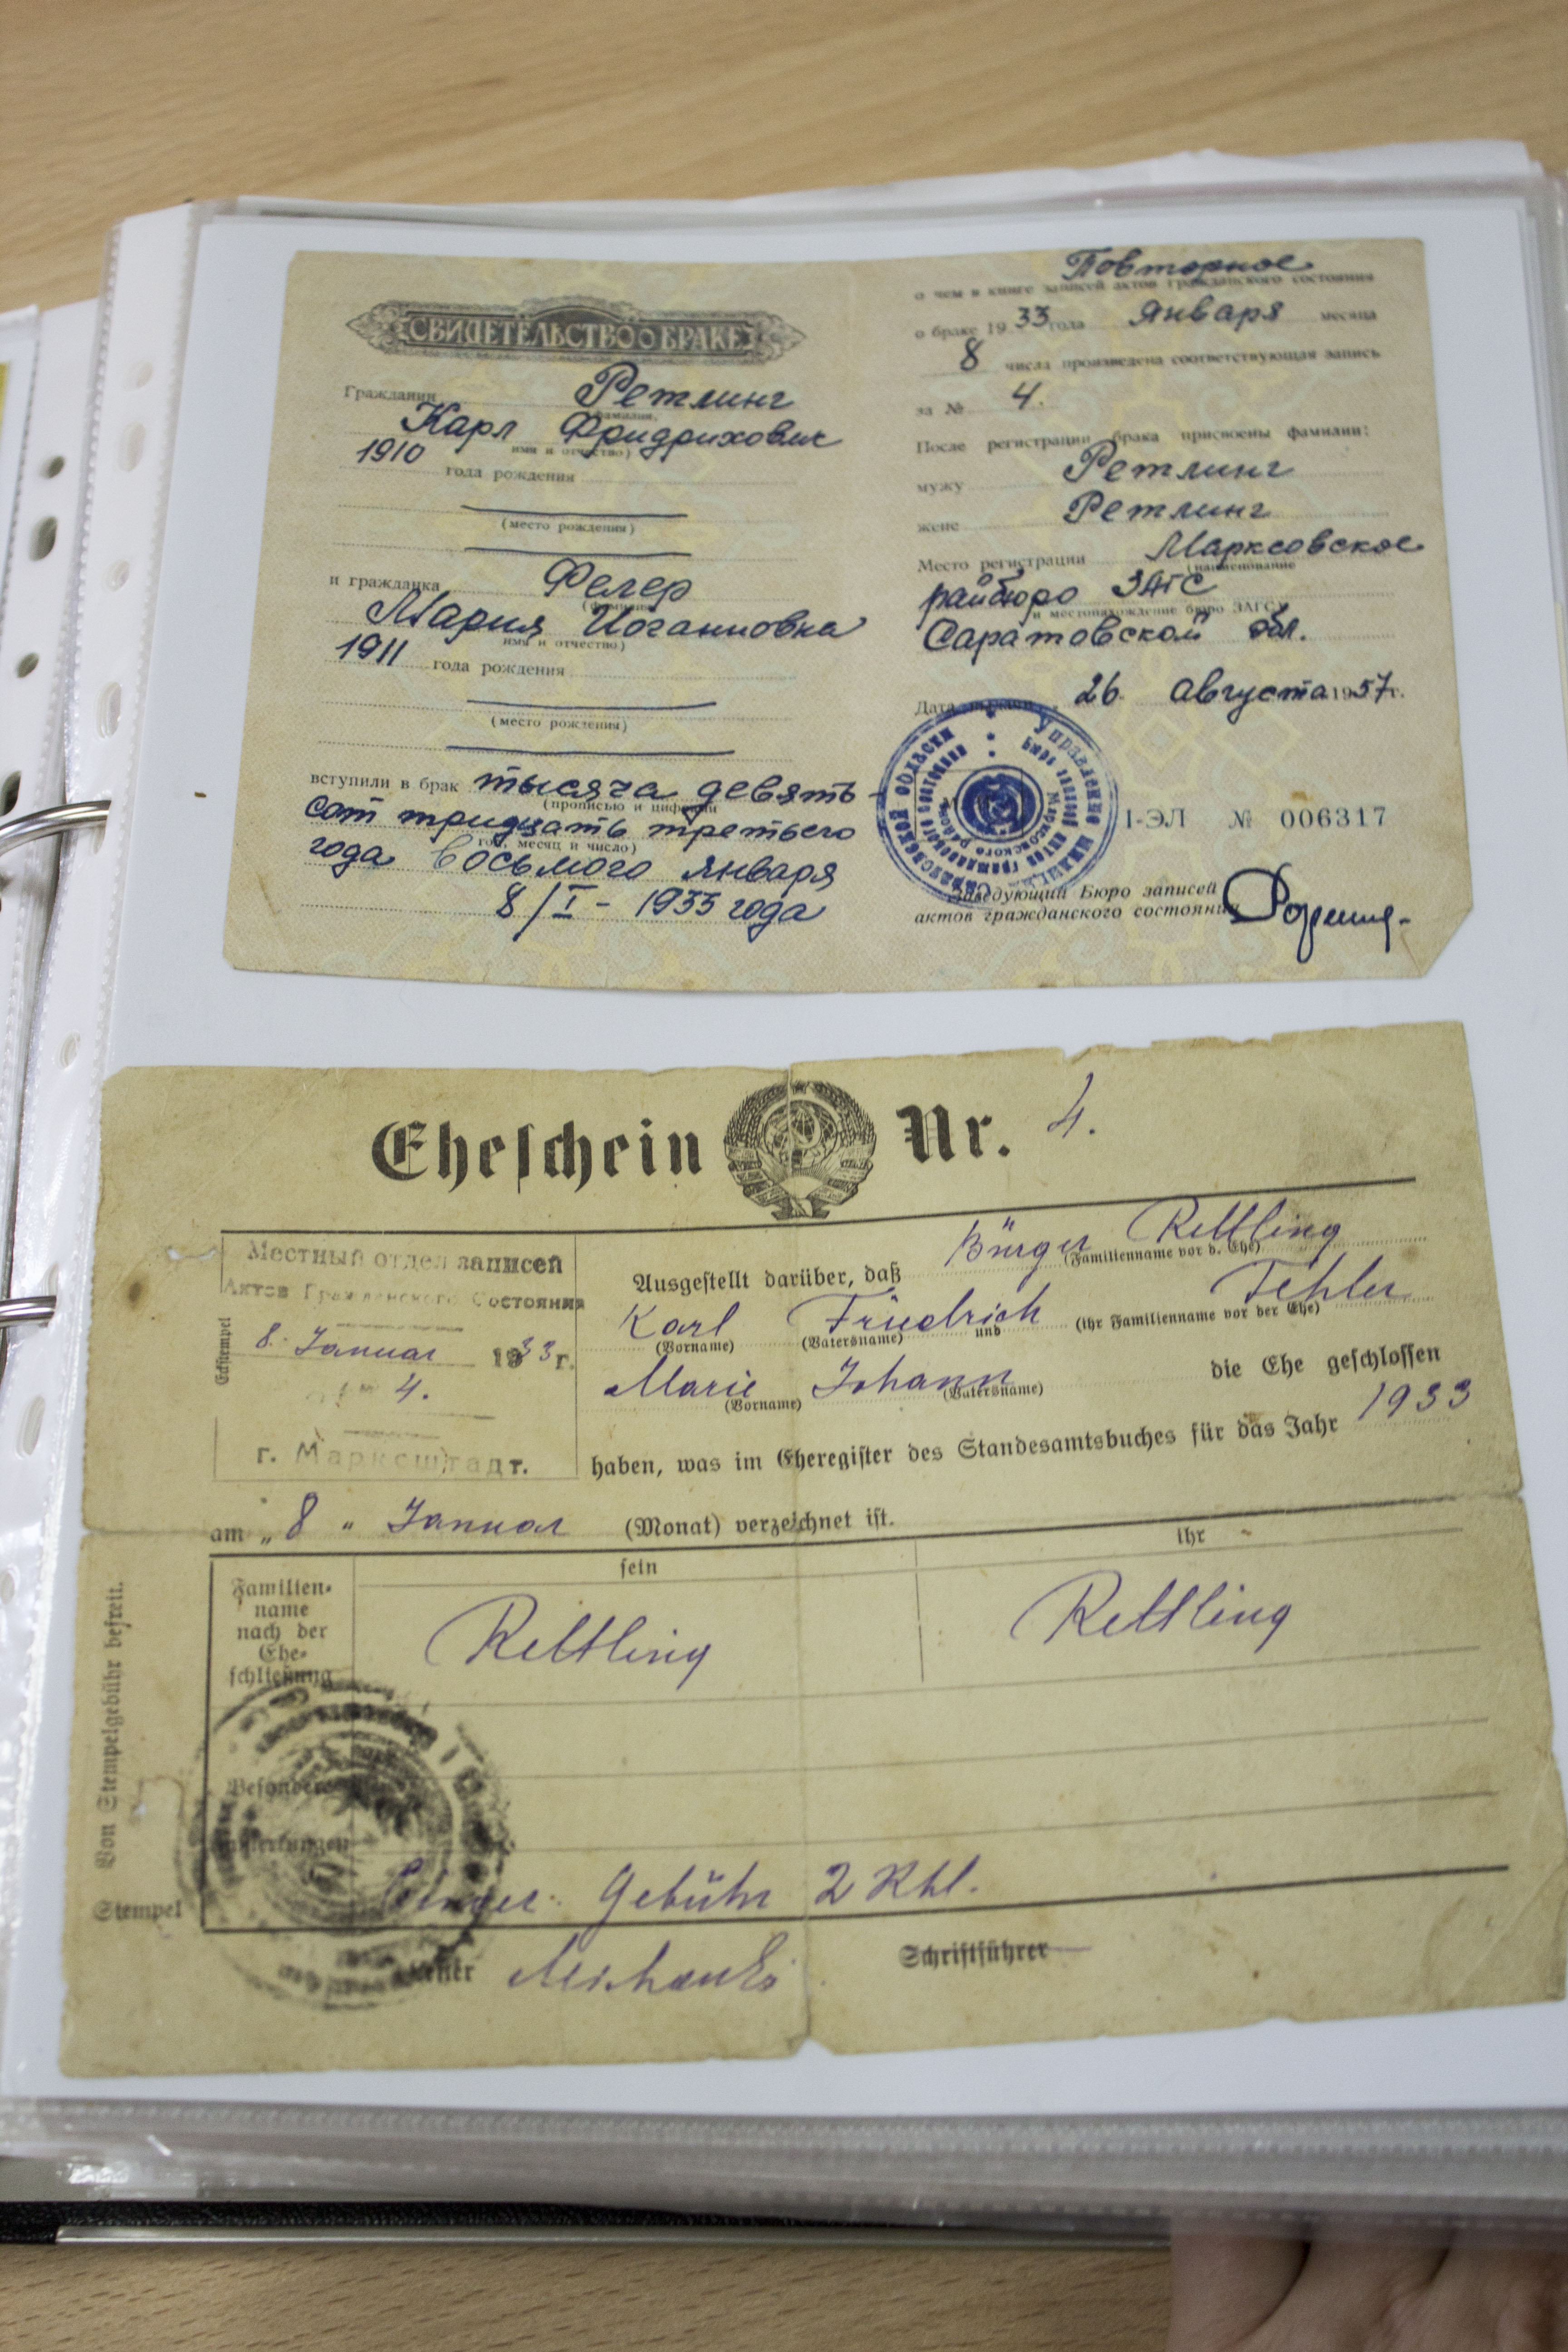 СВИДЕТЕЛЬСТВО о БРАКЕ
Гражданин Ретлинг
(фамилия,
Карл Фридрихович
имя и отчество)
1910 года рождения
(место рождения)
и гражданка Фелер
(фамилия,
Мария Иогановка
имя и отчество)
1911 года рождения
(место рождения)
вступили в брак тысяча девять-
(прописью и цифрами
сот тридцать третьего
год, месяц и число)
года восьмого января
8/I - 1933 года
Повторное
о чем в книге записей актов гражданского состояния
о браке 1933 года января месяца
8 числа произведена соответствующая запись
за № 4.
После регистрации брака присвоены фамилии:
мужу Ретлинг
жене Ретлинг
Место регистрации Марксовское
(наименование
райбюро ЗАГС
и местонахождение бюро ЗАГС)
Саратовской обл.
Дата выдачи 26 августа 1957 г.
I-ЭЛ № 006317
Заведующий Бюро записей
актов гражданского состояния
Eheschein Nr. 4.
Местный отдел записей
Актов Гражданского Состояния
8. Januar 1933 г.
4.
г. Марксштадт.
Eckstempel
Ausgestellt darüber, daß Bürger Rettling
(Familienname vor d. Ehe)
Karl Friedrich und Fehler
(Vorname) (Vatersname) (ihr Familienname vor der Ehe)
Marie Johann die Ehe geschlossen
(Vorname) (Vatersname)
haben, was im Eheregister des Standesamtsbuches für das Jahr 1933
am „ 8 “ Januar (Monat) verzeichnet ist.
sein ihr
Familien-
name
nach der
Ehe-
schließung
Rettling Rettling
Besondere
Bemerkungen
Gebühr 2 Rbl.
Von Stempelgebühr befreit.
Stempel
Leiter
Schriftführer